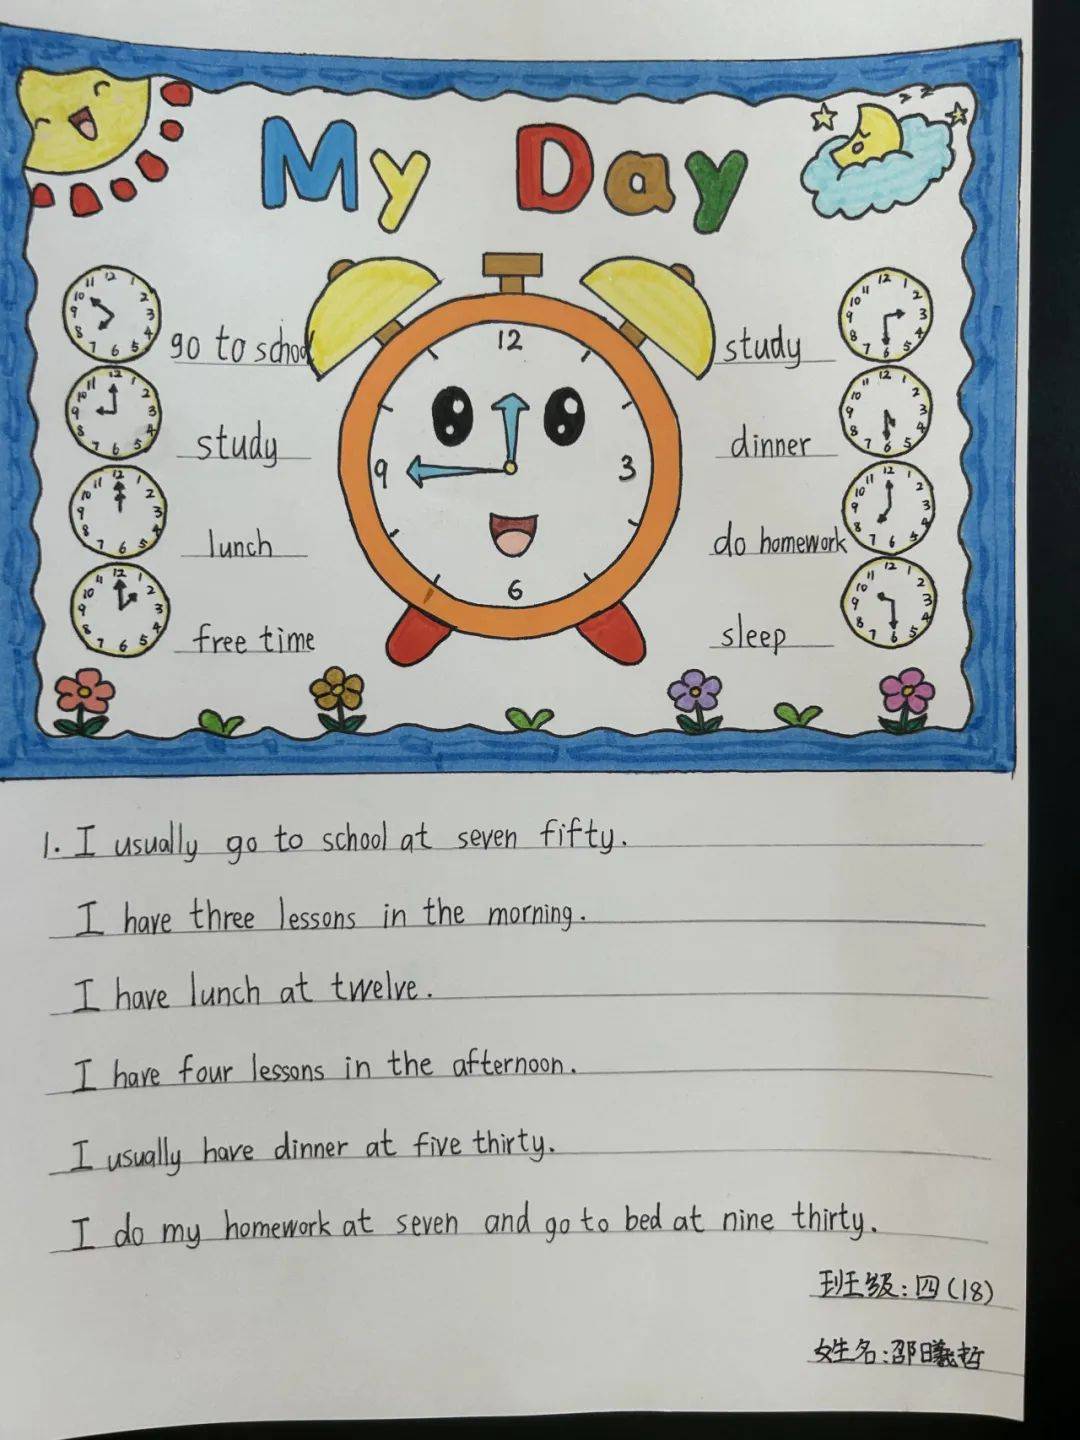 My Day
go to school
study
study
dinner
lunch
do homework
free time
sleep
12
9
3
6
1. I usually go to school at seven fifty.
I have three lessons in the morning.
I have lunch at twelve.
I have four lessons in the afternoon.
I usually have dinner at five thirty.
I do my homework at seven and go to bed at nine thirty.
班级:四(18)
姓名:邵曦哲